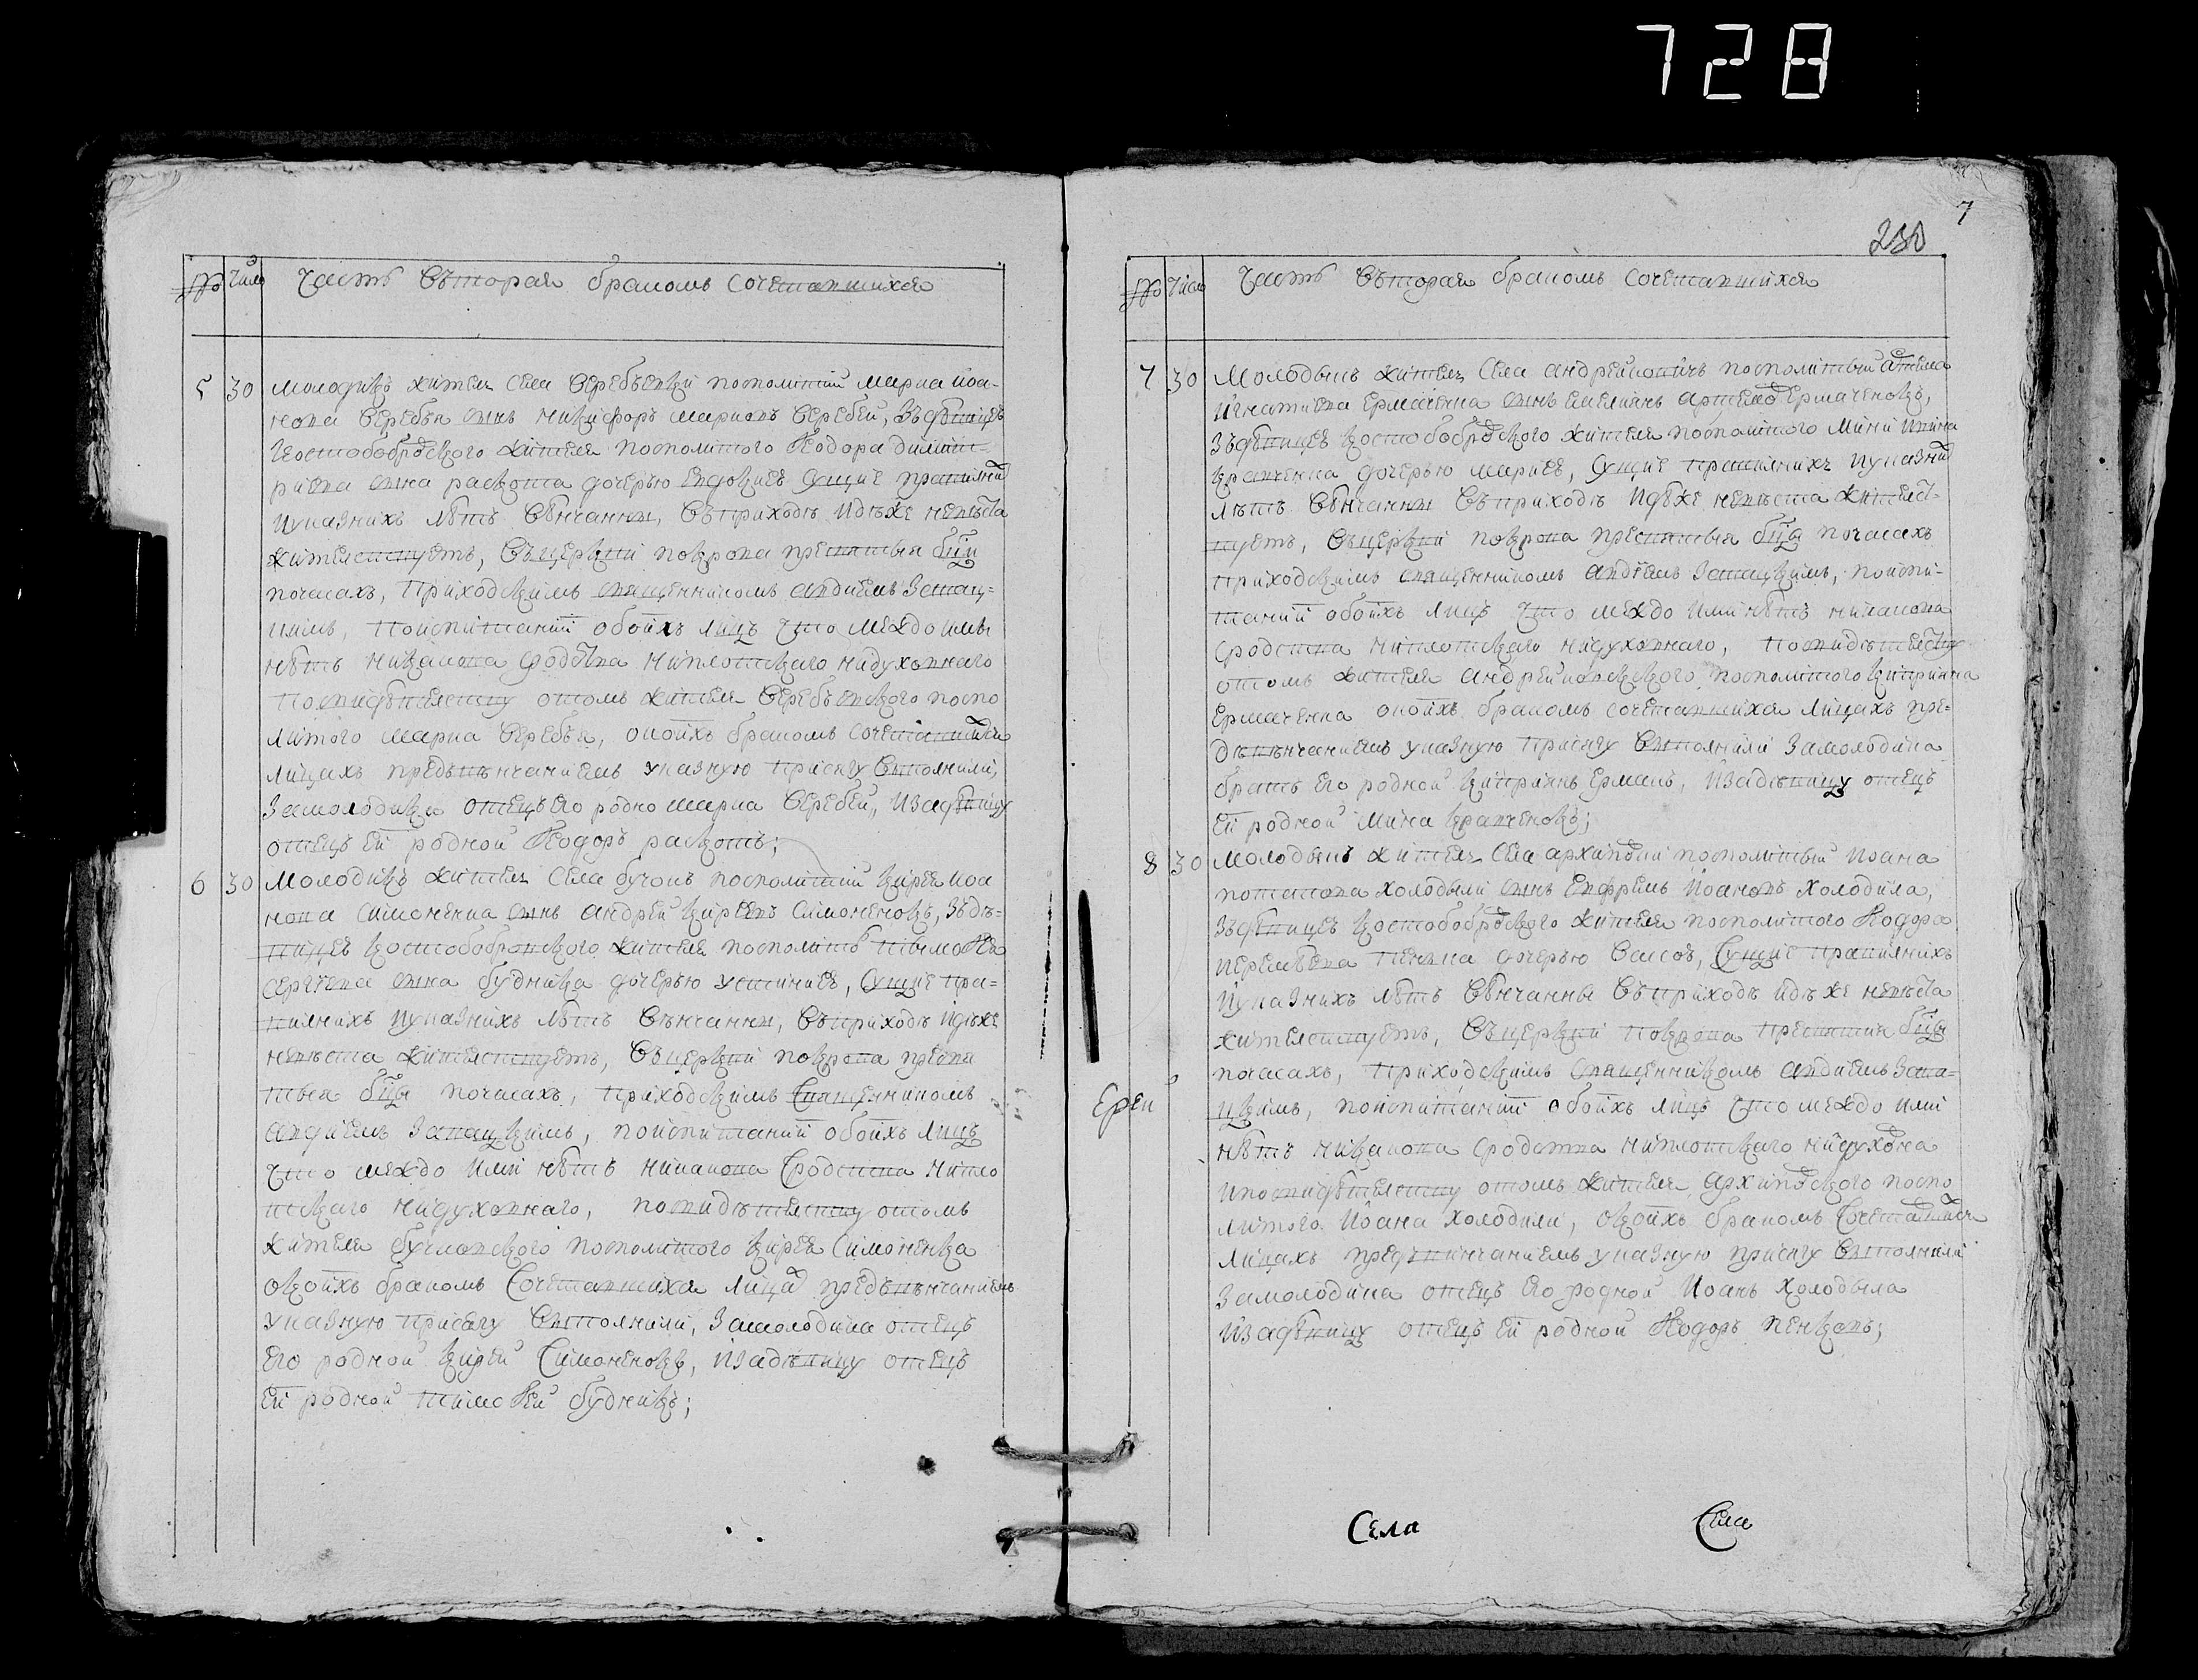 728
7
230
№ Число Часть вторая бракомъ сочетавшихся
5 30 Молодикъ житель села Веребъевки посполитій Марка Иоа-
нова Веребъя сынъ Никифоръ Марковъ Веребей, зъ дѣвицею
Костобобрского жителя посполитого Ѳеодора Димит-
риева сына дочерью Евдокиею сущие правилних
и указнихъ лѣтъ вѣнчанни, въ приходѣ идѣже невѣста
жителствуетъ, въ церквѣ Покрова Пресвятыя Бцы
по часахъ, приходскимъ священникомъ Авдиемъ
по испитаніи обоихъ лицъ что междо ими
нѣтъ никакова сродства ни плотскаго ни духовнаго
по свидѣтелству о томъ жителя Веребъевского поспо
литого Марка Веребъя, о коихъ бракомъ сочетавшихся
лицахъ предъ вѣнчаниемъ указную присягу выполнили,
за молодика отецъ его родно Марка Веребей, и за дѣвицу
отецъ ей родной Ѳеодоръ
6 30 Молодикъ житель села Бучокъ посполитій Кирея Иоа
нова Симоненка сынъ Андрей Киреевъ Симоненокъ, зъ дѣ-
вицею Костобобровского жителя посполитъ Тимоѳея
Сергеева сына Будника дочерью Устиниею, сущие пра-
вилнихъ и указнихъ лѣтъ вѣнчанни, въ приходѣ идѣже
невѣста жителствуетъ, въ церквѣ Покрова Пресвя
тыя Бцы по часахъ, приходскимъ священникомъ
Авдиемъ по испитаніи обоихъ лицъ
что междо ими нѣтъ никакова сродства ни пло
тскаго ни духовнаго, по свидѣтелству о томъ
жителя посполитого Кирея Симоненка
о коихъ бракомъ сочетавшихся лицах предъ вѣнчаниемъ
указную присягу выполнили, за молодика отецъ
его родной Кирей Симоненокъ, и за дѣвицу отецъ
ей родной Тимоѳей Будникъ;
№ Число Часть вторая бракомъ сочетавшихся
7 30 Молодыкъ житель села Андрейковичъ посполитый Артема
Игнатиева Ермаченка сынъ Емелиянъ Артемов Ермаченокъ,
зъ дѣвицею Костобобрского жителя посполитого Мини
Кравченка дочерью Мариею, сущие правилнихъ и указних
лѣтъ вѣнчанни въ приходѣ идѣже невѣста жителст-
вуетъ, въ церквѣ Покрова Пресвятыя Бцы по часахъ
приходскимъ священникомъ Авдіемъ по испи-
таніи обоихъ лицъ что междо ими нѣтъ никакова
сродства ни плотскаго ни духовнаго, по свидѣтелству
о томъ жителя Андрейковского посполитого Киприяна
Ермаченка о коихъ бракомъ сочетавшихся лицахъ пре-
дъ вѣнчаниемъ указную присягу выполнили за молодика
братъ его родной Киприянъ Ермакъ, и за дѣвицу отецъ
ей родной Мина Кравченокъ;
8 30 Молодыкъ житель села посполитый Иоана
Потапова Холодыли сынъ Ефремъ Иоановъ Холодила,
зъ дѣвицею Костобобрского жителя посполитого Ѳеодора
дочерью сущие правилнихъ
и указнихъ лѣтъ вѣнчанны въ приходѣ идѣже невѣста
жителствуетъ, въ церквѣ Покрова Пресвятия Бцы
по часахъ, приходскимъ священникомъ Авдиемъ
по испитаніи обоихъ лицъ что междо ими
нѣтъ никакова сродства ни плотскаго ни духовна
и по свидѣтелству о томъ жителя поспо
литого Иоана Холодили, о коихъ бракомъ сочетавшихся
лицахъ предъ вѣнчаниемъ указную присягу выполнили
за молодика отецъ его родной Иоанъ Холодыла
и за дѣвицу отецъ ей родной Ѳеодоръ
Ереи
Села Села